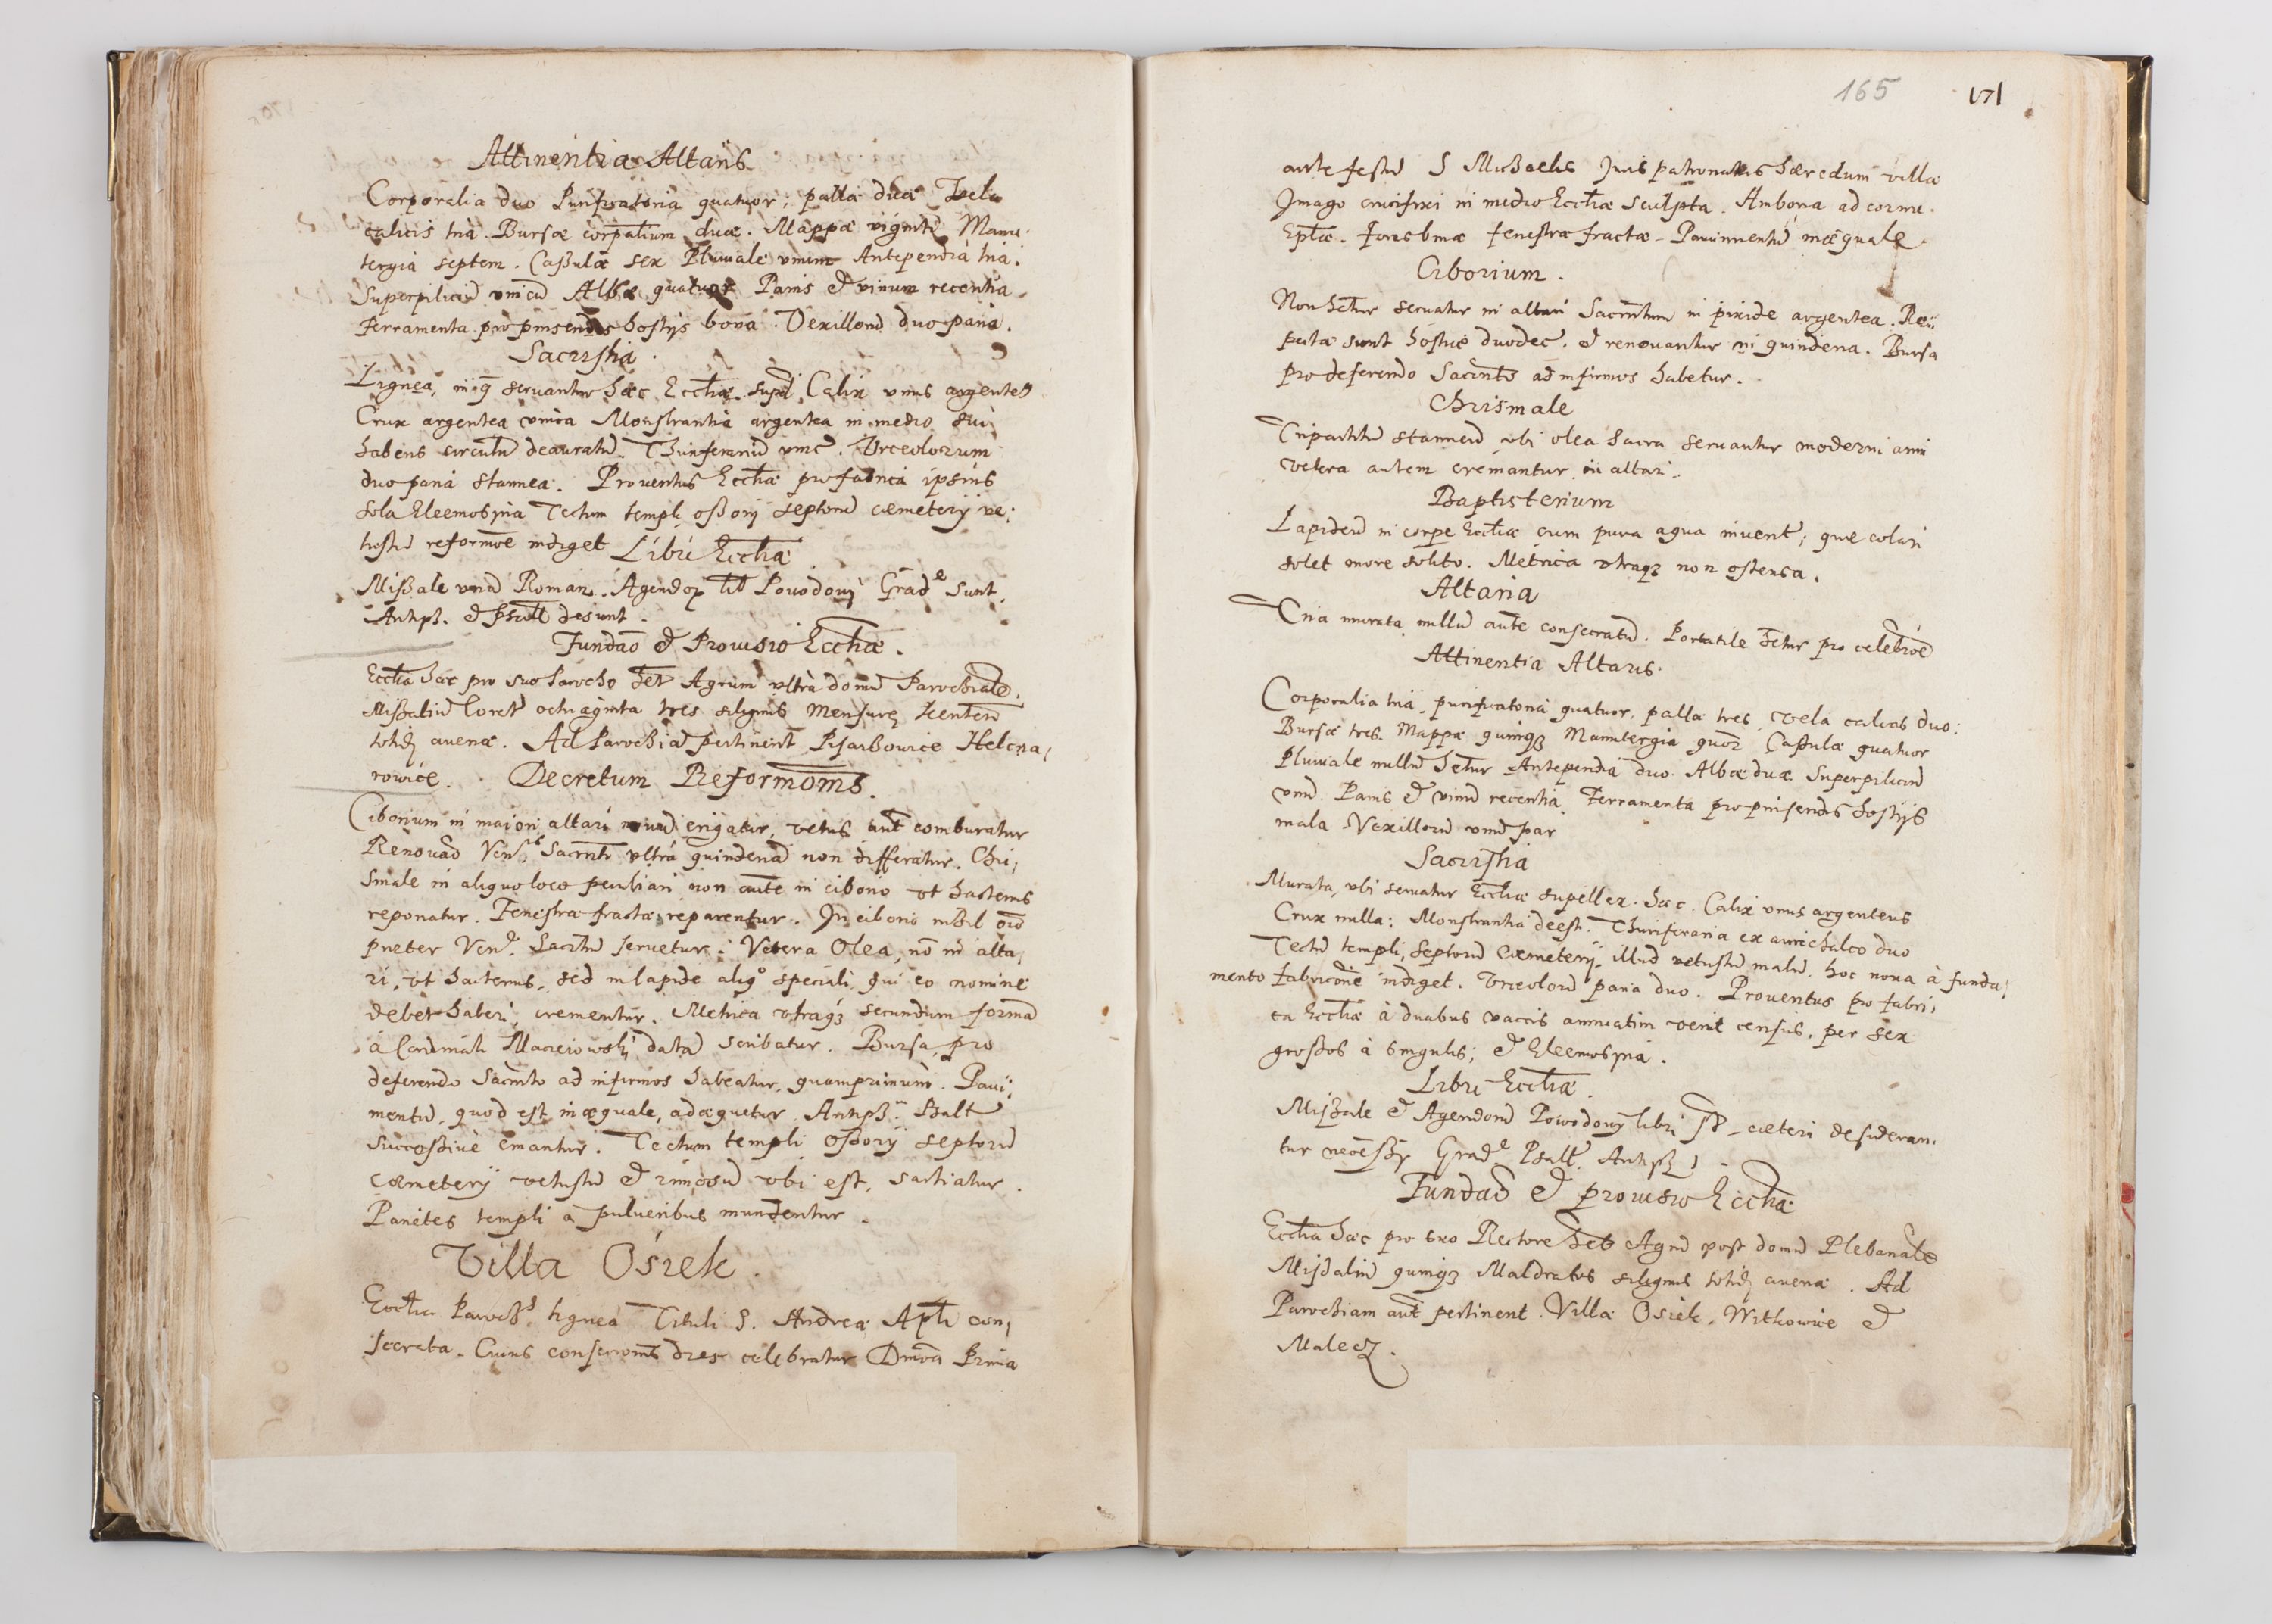 Attinentia Altaris
Corporalia duo Purificatoria quatuor; palla duæ Vela
calicis tria. Bursæ corpalium duæ. Mappæ viginti Manu-
tergia septem. Casulæ sex Pluuiale vnum Antependia tria.
Superpiliciũ vnicũ Albæ quatuor Panis et vinum recentia
Ferramenta pro pinsendis hostijs bona. Vexillorũ duo paria.
Sacristia.
Lignea, in q̃ seruantur hæc Eccliæ supel. Calix vnus argenteꝰ
Crux argentea vnica Monstrantia argentea in medio sui
habens circulũ deauratũ. Thuriferariũ vnic̃. Vrceolorum
duo paria stannea. Prouentus Eccliæ pro fabrica ipsius
sola Eleemosyna Tectum templi ossorij septorũ cæmeterij ve-
tustũ reformõe indiget Libri Eccliæ
Missale vnũ Roman. Agendoꝝ lib Powodowij Grad^e sunt,
Antiph. et Psalt desunt.
Fundaõ et Prouisio Eccliæ.
Ecclia hæc pro suo Parocho het Agrum vltra domũ Parochialẽ.
Missaliũ Coretꝰ octuaginta tres siliginis mensuræ Kentenꝰ
totidẽ auenæ. Ad Parochiã pertinent Pisarzowice Hekna-
rowice. Decretum Reformoñis.
Ciborium in maiori altari nouũ erigatur, vetus aut̃ comburatur
Renouaõ Ven^lis Sacrnti vltra quindenã non differatur. Chri-
smale in aliquo loco peculiari non aut̃e in ciborio vt hactenus
reponatur. Fenestræ fractæ reparentur. In ciborio nihil oĩo
præter Ven^e Sacrtũ seruetur: Vetera Olea, nõ in alta-
ri, vt hactenus, sed in lapide aliq^o speciali, qui eo nomine
debet haberi, crementur. Metrica vtraqꝫ secundum formã
à Cardinali Macieiowski datã scribatur. Bursa pro
deferendo Sacrnto ad infirmos habeatur, quamprimum. Paui-
mentũ, quod est inæquale, adæquetur. Antiph: Psalt
successiuè emantur. Tectum templi ossorij septorũ
cæmeterij vetustũ et rimosũ vbi est, sartiatur.
Parietes templi a pulueribus mundentur.
Villa Osiek.
Ecclia Paroch^s lignea Tituli S. Andreæ Apli con-
secrata. Cuius consecrõnis dies celebratur Dmca Prima
165 171
ante festũ S Michaelis Juris patronatus hæredum villæ
Jmago crucifixi in medio Eccliæ sculpta. Ambona ad cornu
Eplæ. Fores bonæ fenestræ fractæ. Pauimentũ inæquale
Ciborium.
Non hetur seruatur in altari Sacrntum in pixide argentea. Re-
pertæ sunt hostiæ duodec. et renouantur in quindena. Bursa
pro deferendo Sacrnto ad infirmos habetur.
Chrismale
Tripartitũ stanneũ vbi olea sacra seruantur moderni anni
vetera autem cremantur in altari.
Baptisterium
Lapideũ in corpe Eccliæ cum pura aqua inuent^r; quæ colari
solet more solito. Metrica vtraqꝫ non ostensa.
Altaria
Tria murata nullũ aut̃e consecratũ. Portatile hetur pro celebrõe
Attinentia Altaris.
Corporalia tria, purificatoria quatuor, palla tres, vela calicis duo.
Bursæ tres. Mappæ quinqꝫ Manutergia quor Casulæ quatuor
Pluuiale nullũ hetur Antependia duo. Albæ duæ Superpiliciũ
vnũ Panis et vinũ recentia. Ferramenta pro pinsendis hostijs
mala. Vexillorũ vnũ par
Sacristia
Murata, vbi seruatur Eccliæ supellex. hæc. Calix vnus argenteus
Crux nulla: Monstrantia deest. Thuriferaria ex aurichalco duo
Tectũ templi, septorũ Cæmeterij, illud vetustũ malũ. hoc noua à funda-
mento fabricõne indiget. Vrceolorũ paria duo. Prouentus pro fabri-
ca Eccliæ à duabus vaccis annuatim venit census, per sex
grossos à singulis; et Eleemosyna.
Libri Eccliæ.
Missale et Agendorũ Powodowij libri st̃, cæteri desideran-
tur necessrij Grad^e Psalt. Antiph
Fundaõ et prouisio Eccliæ
Ecclia hæc pro suo Rectore het Agrũ post domũ Plebanalẽ
Missaliũ quinqꝫ Maldratos siliginis totidẽ auenæ. Ad
Parochiam aut̃ pertinent. Villa Osiek, Witkowice et
Malecz.